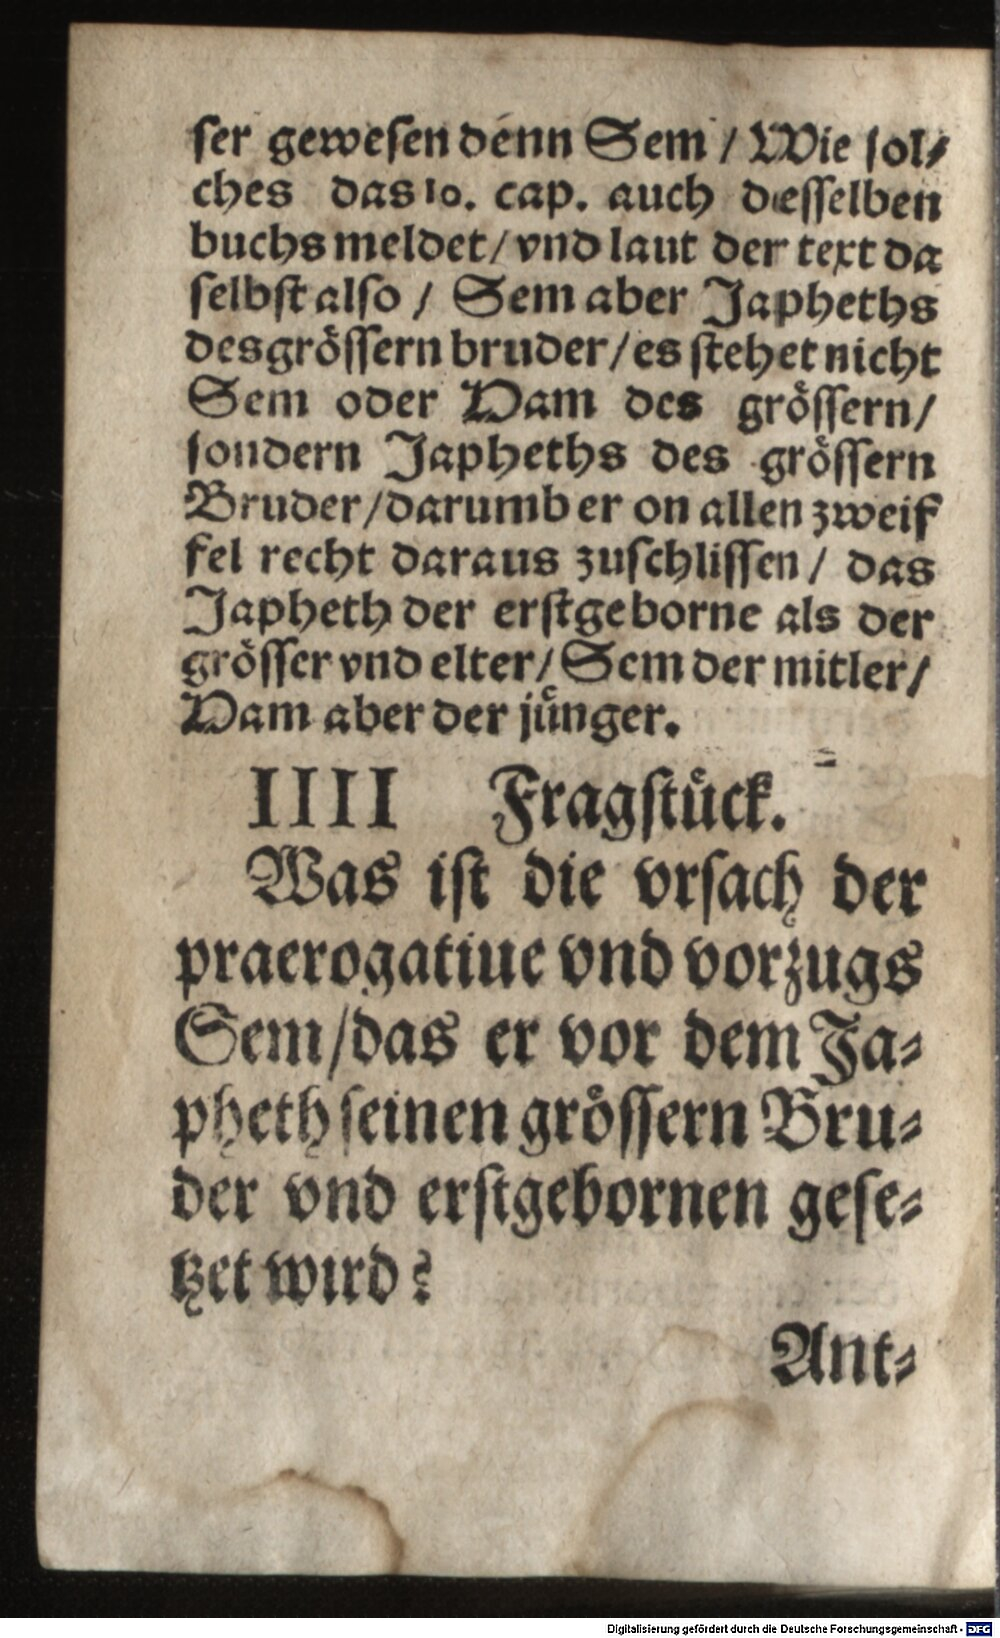 ser gewesen denn Sem / Wie sol⸗
ches das 10. cap. auch diesselben
buchs meldet / vnd laut der text da
selbst also / Sem aber Japheths
des grössern bruder / es stehet nicht
Sem oder Ham des grössern /
sondern Japheths des grössern
Bruder / darumb er on allen zweif
fel recht daraus zuschlissen / das
Japheth der erstgeborne als der
grösser vnd elter / Sem der mitler /
Ham aber der jünger.
IIII Fragstück.
Was ist die vrsach der
praerogatiue vnd vorzugs
Sem / das er vor dem Ja⸗
pheth seinen grössern Bru⸗
der vnd erstgebornen gese⸗
tzet wird?
Ant⸗
Digitalisierung gefördert durch die Deutsche Forschungsgemeinschaft - DFG